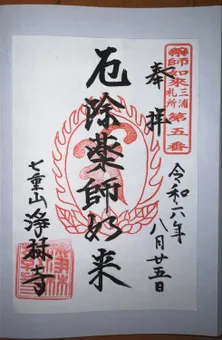 奉拝
薬師如来
三浦
札所
第五番
厄除薬師如来
令和六年
八月廿五日
七重山
浄林寺